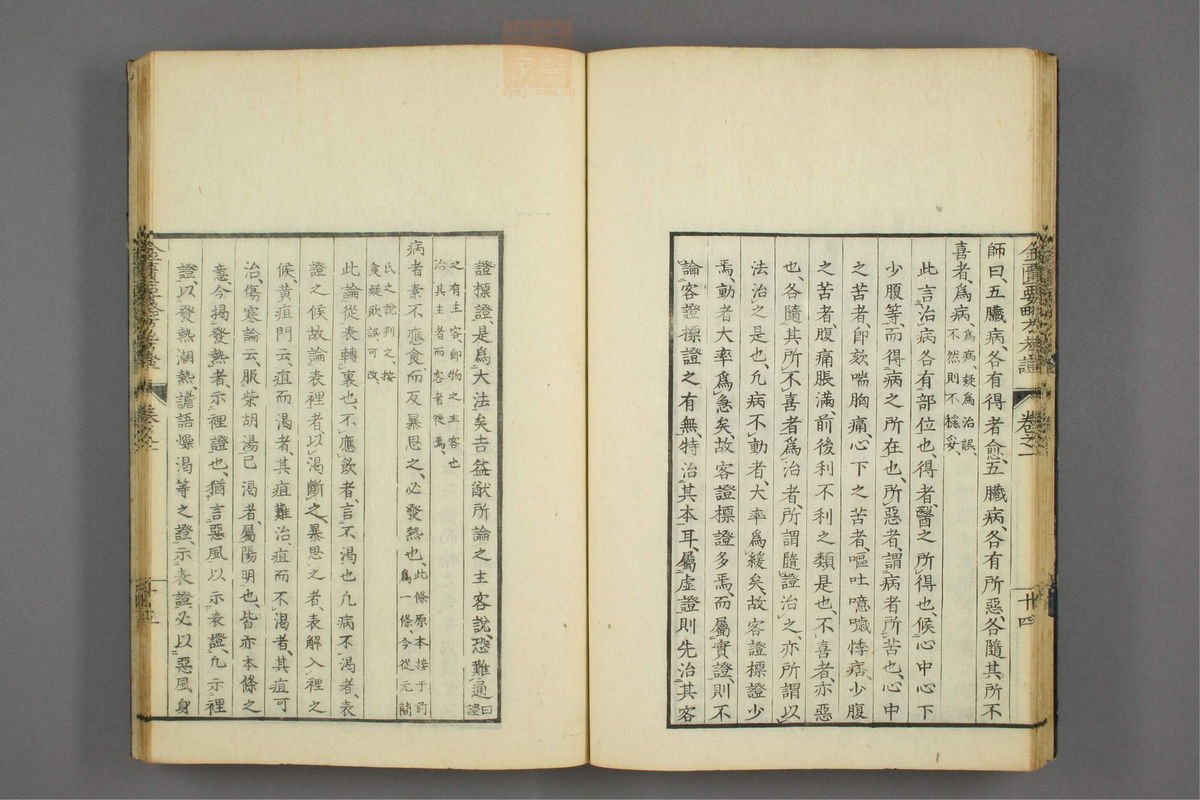 師曰、五臟病各有得者愈、五臟病、各有所惡、各隨其所不
喜者、爲病、爲病、疑爲治誤、
不然則不穩妥、
此言治病各有部位也、得者、醫之所得也、候心中心下
少腹等、而得病之所在也、所惡者、謂病者所苦也、心中
之苦者、即欬喘胸痛、心下之苦者、嘔吐噫噦悸痞、少腹
之苦者、腹痛脹滿、前後利不利之類是也、不喜者、亦惡
也、各隨其所不喜者爲治者、所謂隨證治之、亦所謂以
法治之是也、凢病不動者、大率爲緩矣、故客證標證少
焉、動者大率爲急矣、故客證標證多焉、而屬實證、則不
論客證標證之有無、特治其本耳、屬虛證則先治其客
卷之一
十四
證標證、是爲大法矣、吉益猷所論之主客說、恐難通、曰證
之有主客、卽物之主客也
治其主者而客者從焉、
病者素不應食、而反暴思之、必發熱也、此條原本接于前
爲一條、今從元簡
氏之說判之、按
食疑飲誤可改
此論從表轉裏也、不應飲者、言不渴也、凢病不渴者、表
證之候、故論表裡者、以渴斷之、暴思之者、表解入裡之
候、黄疸門云、疸而渴者、其疸難治、疸而不渴者、其疸可
治、傷寒論云、服柴胡湯已渴者、屬陽明也、皆亦本條之
意、今揭發熱者、示裡證也、猶言惡風以示表證、凢示裡
證、以發熱潮熱、譫語燥渴等之證、示表證必以惡風身